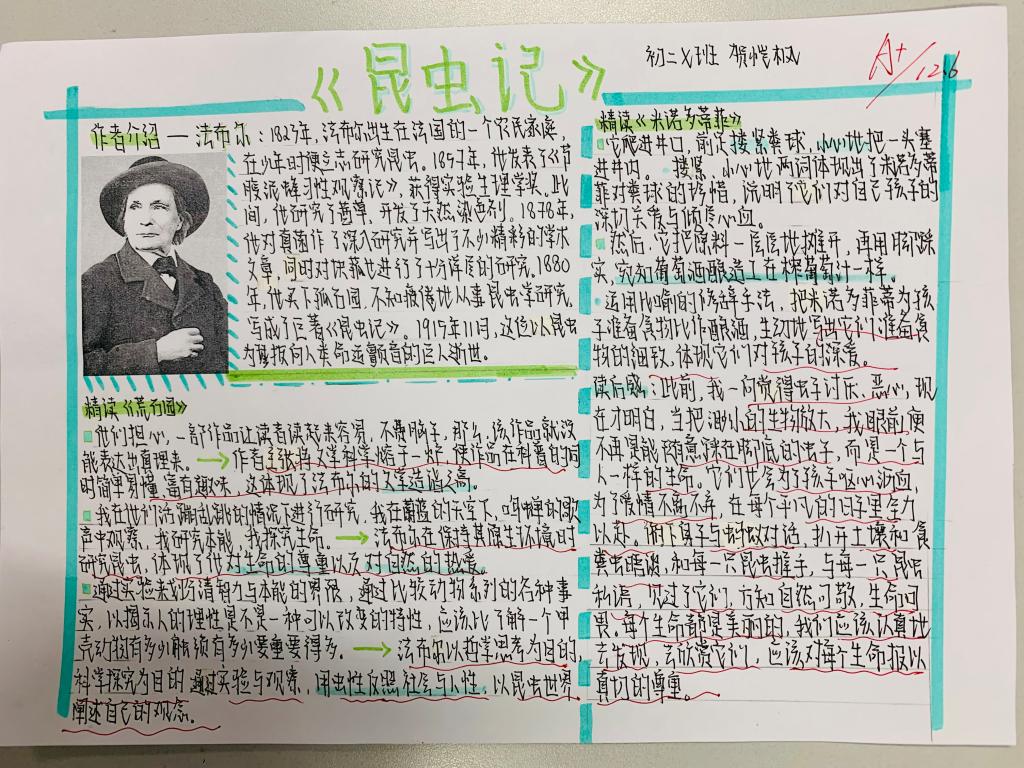 《昆虫记》
初二七班 贺恺枫
A+
12.6
作者介绍 — 法布尔：1823年，法布尔出生在法国的一个农民家庭，
在少年时便立志研究昆虫。1857年，他发表了《节
腹泥蜂习性观察记》，获得实验生理学奖。此
间，他研究了茜草，开发了天然染色剂。1878年，
他对真菌作了深入研究并写出了不少精彩的学术
文章，同时对块菰也进行了十分详尽的研究。1880
年，他买下孤石园，不知疲倦地从事昆虫学研究，
写成了巨著《昆虫记》。1915年11月，这位以昆虫
为琴拨向人类命运颤音的巨人逝世。
精读《荒石园》
他们担心，一部作品让读者读起来容易，不费脑子，那么，该作品就没
能表达出真理来。→作者主张将文学科学熔于一炉，使作品在科普的同
时简单易懂，富有趣味，这体现了法布尔的文学造诣之高。
我在他们活蹦乱跳的情况下进行研究，我在蔚蓝的天空下，听蝉的歌
声中观察，我研究本能，我探究生命。→法布尔在保持其原生环境时
研究昆虫，体现了他对生命的尊重以及对自然的热爱。
通过实验来划分清智力与本能的界限，通过比较动物系列的各种事
实，以揭示人的理性是不是一种可以改变的特性，应该比了解一个甲
壳动物有多少触须有多少要重要得多。→法布尔以哲学思考为目的，
科学探究为目的 通过实验与观察，用虫性反照社会与人性，以昆虫世界
阐述自己的观念。
精读《米诺多蒂菲》
它爬进井口，前足搂紧粪球，小心地把一头塞
进井口。 搂紧、小心地两词体现出了米诺多蒂
菲对粪球的珍惜，说明了它们对自己孩子的
深切关爱与倾尽心血。
然后，它把原料一层层地摊开，再用脚踩
实，宛如葡萄酒酿造工在榨葡萄汁一样。
运用比喻的修辞手法，把米诺多菲蒂为孩
子准备食物比作酿酒，生动地写出它们准备食
物的细致，体现它们对孩子的深爱。
读后感：此前，我一向觉得虫子讨厌、恶心，现
在才明白，当把渺小的生物放大，我眼前便
不再是能随意踩在脚底的虫子，而是一个与
人一样的生命。它们也会为了孩子呕心沥血，
为了爱情不离不弃，在每个平凡的日子里全力
以赴。俯下身子与虫对话，扒开土壤和食
粪虫瞎聊，和每一只昆虫握手，与每一只昆虫
私语，见过了它们，方知自然可敬，生命可
畏。每个生命都是美丽的，我们应该认真地
去发现，去欣赏它们，应该对每个生命报以
真切的尊重。